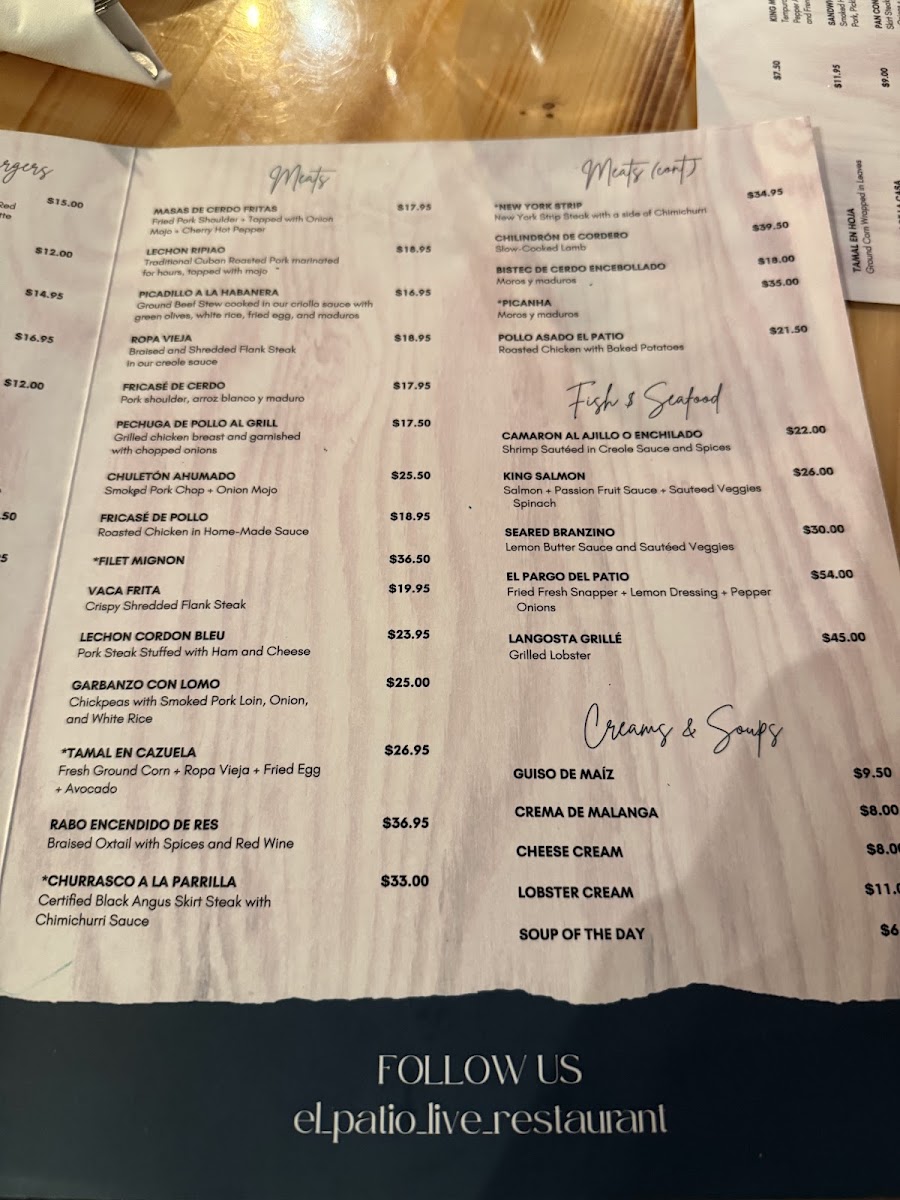 $15.00
$12.00
$14.95
$16.95
$12.00
Meats
MASAS DE CERDO FRITAS $17.95
Fried Pork Shoulder + Topped with Onion
Mojo + Cherry Hot Pepper
LECHON RIPIAO $18.95
Traditional Cuban Roasted Pork marinated
for hours, topped with mojo
PICADILLO A LA HABANERA $16.95
Ground Beef Stew cooked in our criollo sauce with
green olives, white rice, fried egg, and maduros
ROPA VIEJA $18.95
Braised and Shredded Flank Steak
in our creole sauce
FRICASÉ DE CERDO $17.95
Pork shoulder, arroz blanco y maduro
PECHUGA DE POLLO AL GRILL $17.50
Grilled chicken breast and garnished
with chopped onions
CHULETÓN AHUMADO $25.50
Smoked Pork Chop + Onion Mojo
FRICASÉ DE POLLO $18.95
Roasted Chicken in Home-Made Sauce
*FILET MIGNON $36.50
VACA FRITA $19.95
Crispy Shredded Flank Steak
LECHON CORDON BLEU $23.95
Pork Steak Stuffed with Ham and Cheese
GARBANZO CON LOMO $25.00
Chickpeas with Smoked Pork Loin, Onion,
and White Rice
*TAMAL EN CAZUELA $26.95
Fresh Ground Corn + Ropa Vieja + Fried Egg
+ Avocado
RABO ENCENDIDO DE RES $36.95
Braised Oxtail with Spices and Red Wine
*CHURRASCO A LA PARRILLA $33.00
Certified Black Angus Skirt Steak with
Chimichurri Sauce
Meats (cont)
*NEW YORK STRIP $34.95
New York Strip Steak with a side of Chimichurri
CHILINDRÓN DE CORDERO $39.50
Slow-Cooked Lamb
BISTEC DE CERDO ENCEBOLLADO $18.00
Moros y maduros
*PICANHA $35.00
Moros y maduros
POLLO ASADO EL PATIO $21.50
Roasted Chicken with Baked Potatoes
Fish & Seafood
CAMARON AL AJILLO O ENCHILADO $22.00
Shrimp Sautéed in Creole Sauce and Spices
KING SALMON $26.00
Salmon + Passion Fruit Sauce + Sauteed Veggies
Spinach
SEARED BRANZINO $30.00
Lemon Butter Sauce and Sautéed Veggies
EL PARGO DEL PATIO $54.00
Fried Fresh Snapper + Lemon Dressing + Pepper
Onions
LANGOSTA GRILLÉ $45.00
Grilled Lobster
Creams & Soups
GUISO DE MAÍZ $9.50
CREMA DE MALANGA $8.00
CHEESE CREAM $8.0
LOBSTER CREAM $11.
SOUP OF THE DAY $6
FOLLOW US
el_patio_live_restaurant
$7.50
$11.95
$9.00
TAMAL EN HOJA
Ground Corn Wrapped in Leaves